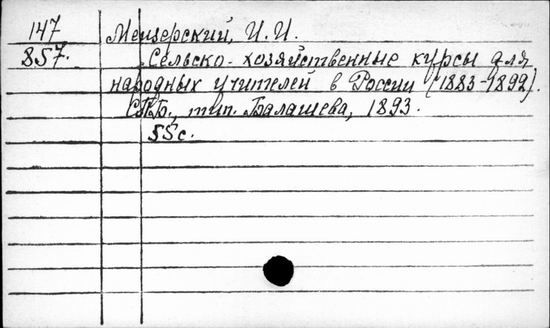 147 Мещерский, И. И.
857. Сельско-хозяйственные курсы для
народных учителей в России (1883-1892).
СПБ., тип. Балашева, 1893.
55 с.